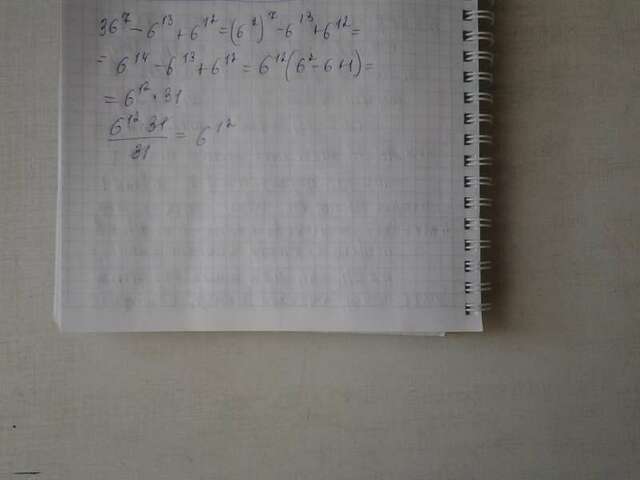 36⁷ - 6¹³ + 6¹² = (6²)⁷ - 6¹³ + 6¹² =
= 6¹⁴ - 6¹³ + 6¹² = 6¹² (6² - 6 + 1) =
= 6¹² · 31
6¹² 31 / 31 = 6¹²